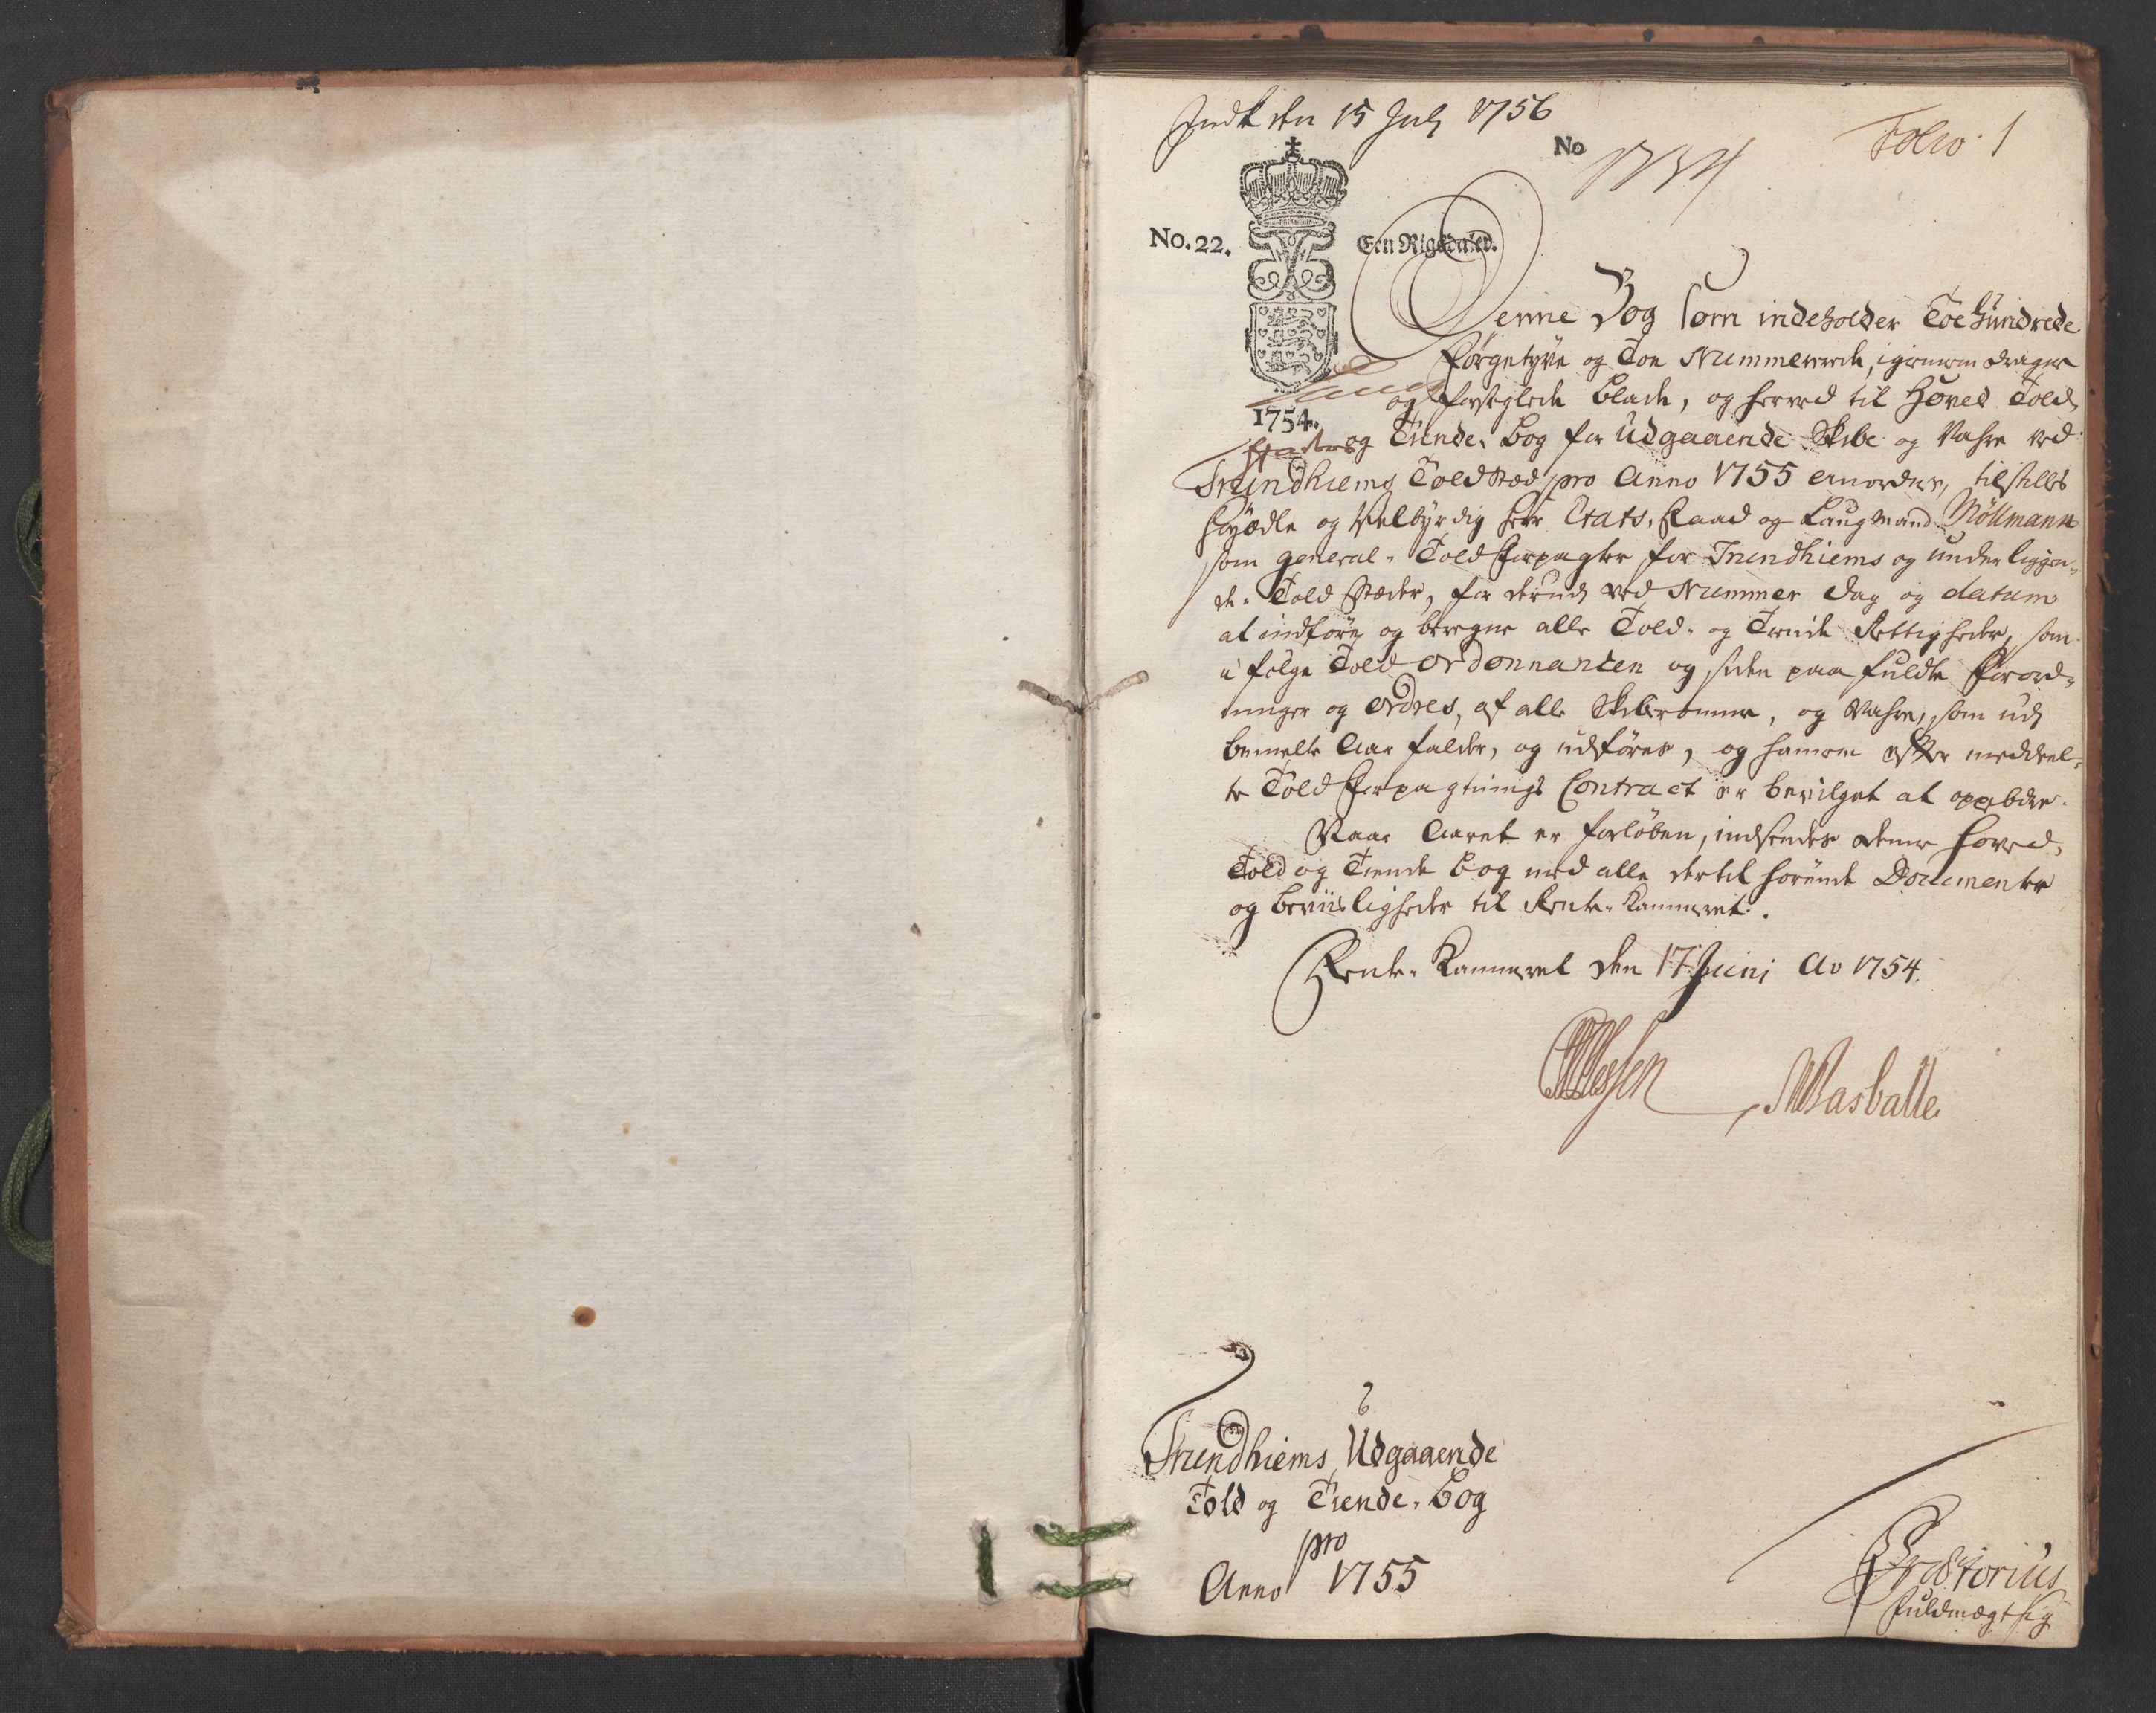 Indk den 15 July 1756
No
Folio 1
No. 22.
Een Rigsdaler.
1754.
Denne Bog som indeholder Toe Hundrede
Førgetyve og Toe Nummererede, igiennemdragne
og forseglede Blade, og herved til Hoved Told
og Tiende-Bog for Udgaaende Skibe og Vahre ved
Trundhiems Toldsted pro Anno 1755 anordnes, tilstilles
Høyædle og Velbyrdig Herr Etats-Raad og Laugmand Möllmann
som General-Told Forpagter for Trundhiems og underliggen-
de Told Stæder, for derudj ved Nummer Dag og datum
at indføre og beregne alle Told- og Tiende Rettigheder, som
i følge Told Ordonnancen og siden paa fuldte Forord-
ninger og Ordres, af alle Skiberomme, og Vahre, som udj
bemelte Aar falder, og udføres, og hannem efter meddeel-
te Told Forpagtnings Contract er bevilget at oppebære.
Naar Aaret er forløben, indsendes denne Hoved-
Told og Tiende Bog med alle dertil hørende Documenter
og Beviisligheder til Rente-Kammeret.
Rente-Kammeret den 17 Junj Ao 1754.
Wasballe
Trundhiems Udgaaende
Told og Tiende-Bog
pro
Anno 1755
Prætorius
Fuldmægtig